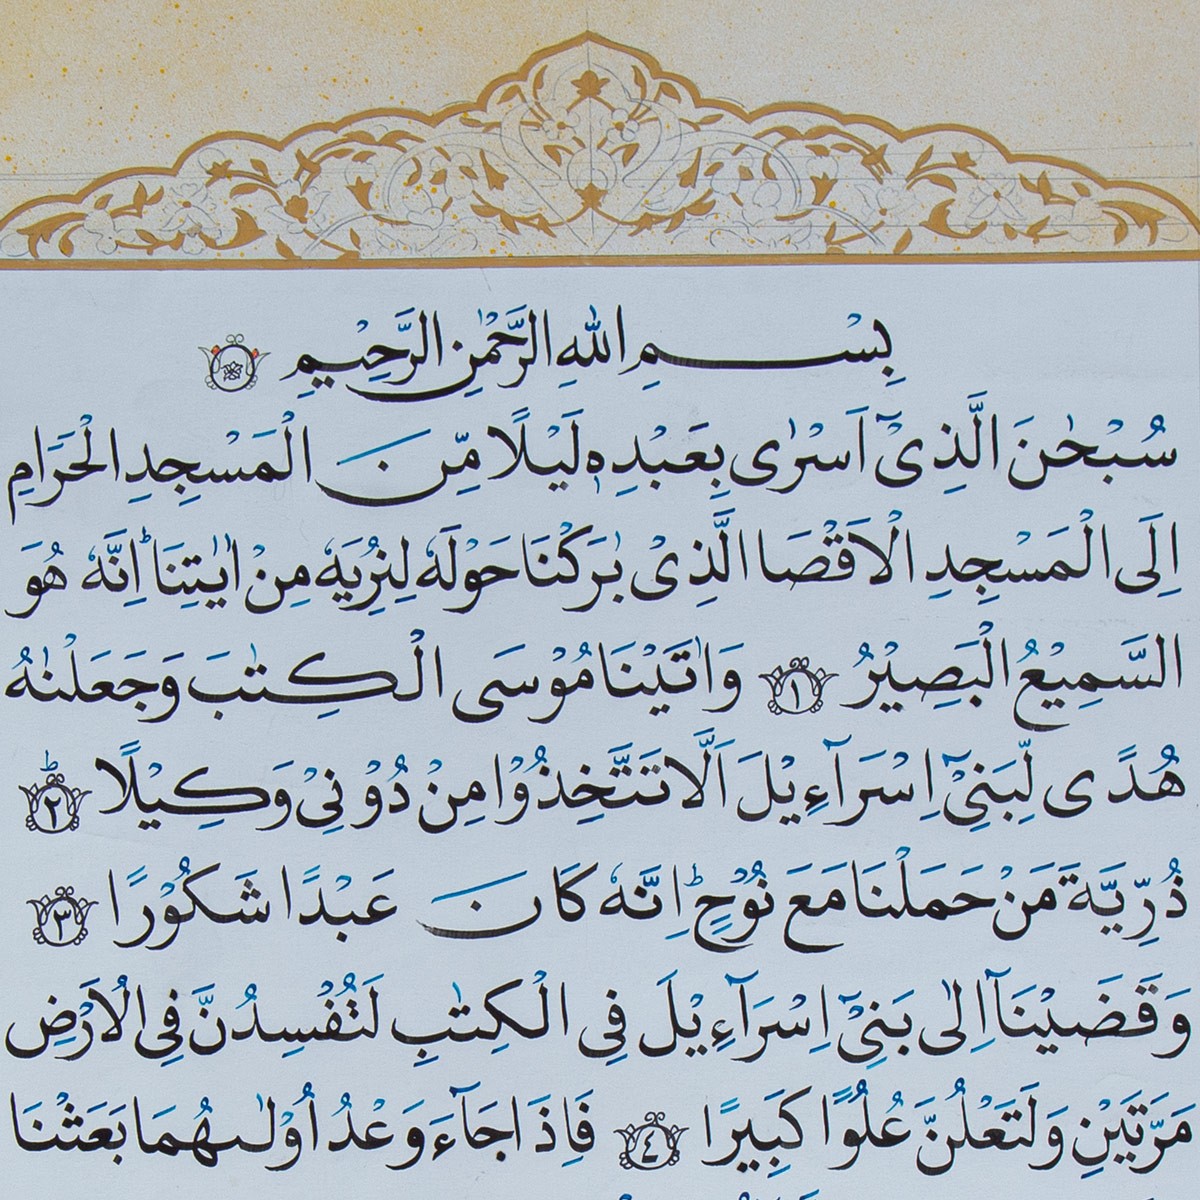 بِسْمِ اللهِ الرَّحْمٰنِ الرَّحِيْمِ
سُبْحٰنَ الَّذِىْٓ اَسْرٰى بِعَبْدِهٖ لَيْلًا مِّنَ الْمَسْجِدِ الْحَرَامِ
اِلَى الْمَسْجِدِ الْاَقْصَا الَّذِىْ بٰرَكْنَا حَوْلَهٗ لِنُرِيَهٗ مِنْ اٰيٰتِنَا ؕ اِنَّهٗ هُوَ
السَّمِيْعُ الْبَصِيْرُ ﴿١﴾ وَاٰتَيْنَا مُوْسَى الْكِتٰبَ وَجَعَلْنٰهُ
هُدًى لِّبَنِىْٓ اِسْرَآءِيْلَ اَلَّا تَتَّخِذُوْا مِنْ دُوْنِىْ وَكِيْلًا ؕ ﴿٢﴾
ذُرِّيَّةَ مَنْ حَمَلْنَا مَعَ نُوْحٍ ؕ اِنَّهٗ كَانَ عَبْدًا شَكُوْرًا ﴿٣﴾
وَقَضَيْنَآ اِلٰى بَنِىْٓ اِسْرَآءِيْلَ فِى الْكِتٰبِ لَتُفْسِدُنَّ فِى الْاَرْضِ
مَرَّتَيْنِ وَلَتَعْلُنَّ عُلُوًّا كَبِيْرًا ﴿٤﴾ فَاِذَا جَآءَ وَعْدُ اُوْلٰىهُمَا بَعَثْنَا